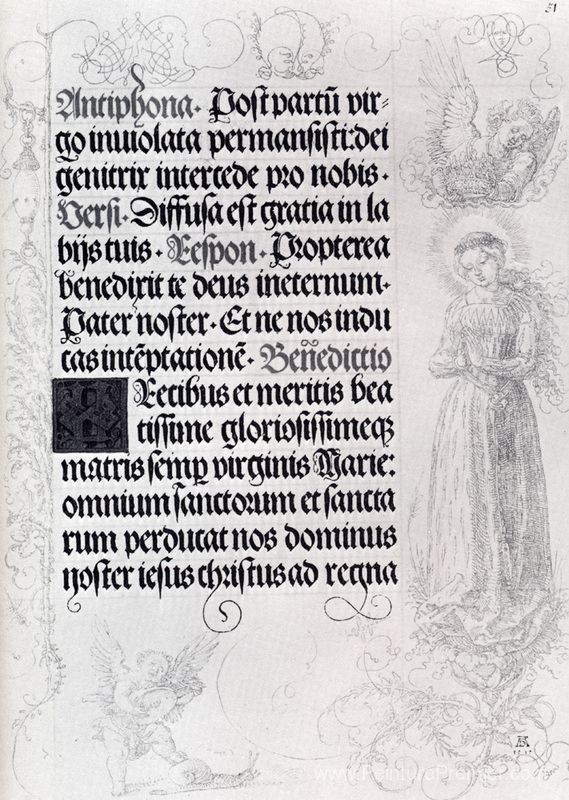 51
Antiphona. Post partū vir=
go inuiolata permansisti: dei
genitrix intercede pro nobis.
Versi. Diffusa est gratia in la
bijs tuis. Respon. Propterea
benedixit te deus ineternum.
Pater noster. Et ne nos indu
cas intēptationē. Benedictio
Precibus et meritis bea
tissime gloriosissimeqʒ
matris semꝑ virginis Marie:
omnium sanctorum et sancta
rum perducat nos dominus
noster iesus christus ad regna
AD